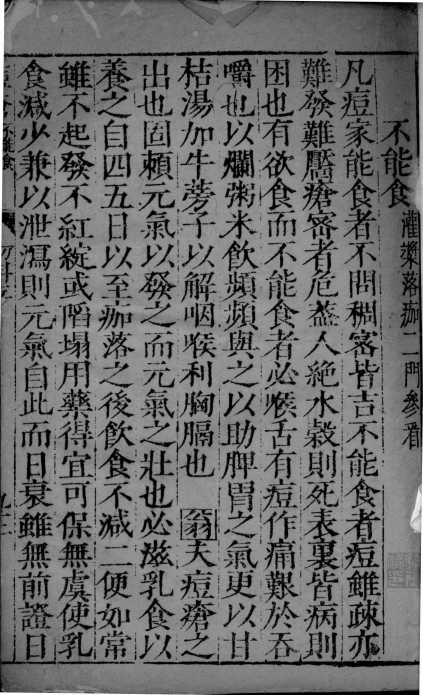 不能食 灌漿落痂二門參看
凡痘家能食者不問稠密皆吉不能食者痘雖疎亦
難發難靨瘡密者危葢人絶水穀則死表裏皆病則
困也有欲食而不能食者必喉舌有痘作痛艱於吞
嚼也以爛粥米飲頻頻與之以助脾胃之氣更以甘
桔湯加牛蒡子以解咽喉利胸膈也 翁 夫痘瘡之
出也固頼元氣以發之而元氣之壯也必滋乳食以
養之自四五日以至痂落之後飲食不減二便如常
雖不起發不紅綻或陷塌用藥得宜可保無虞使乳
食減少兼以泄瀉則元氣自此而日衰雖無前證日